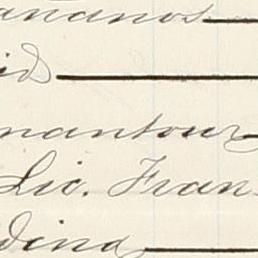 ananos
id
mantour
Lic. Fran-
dina